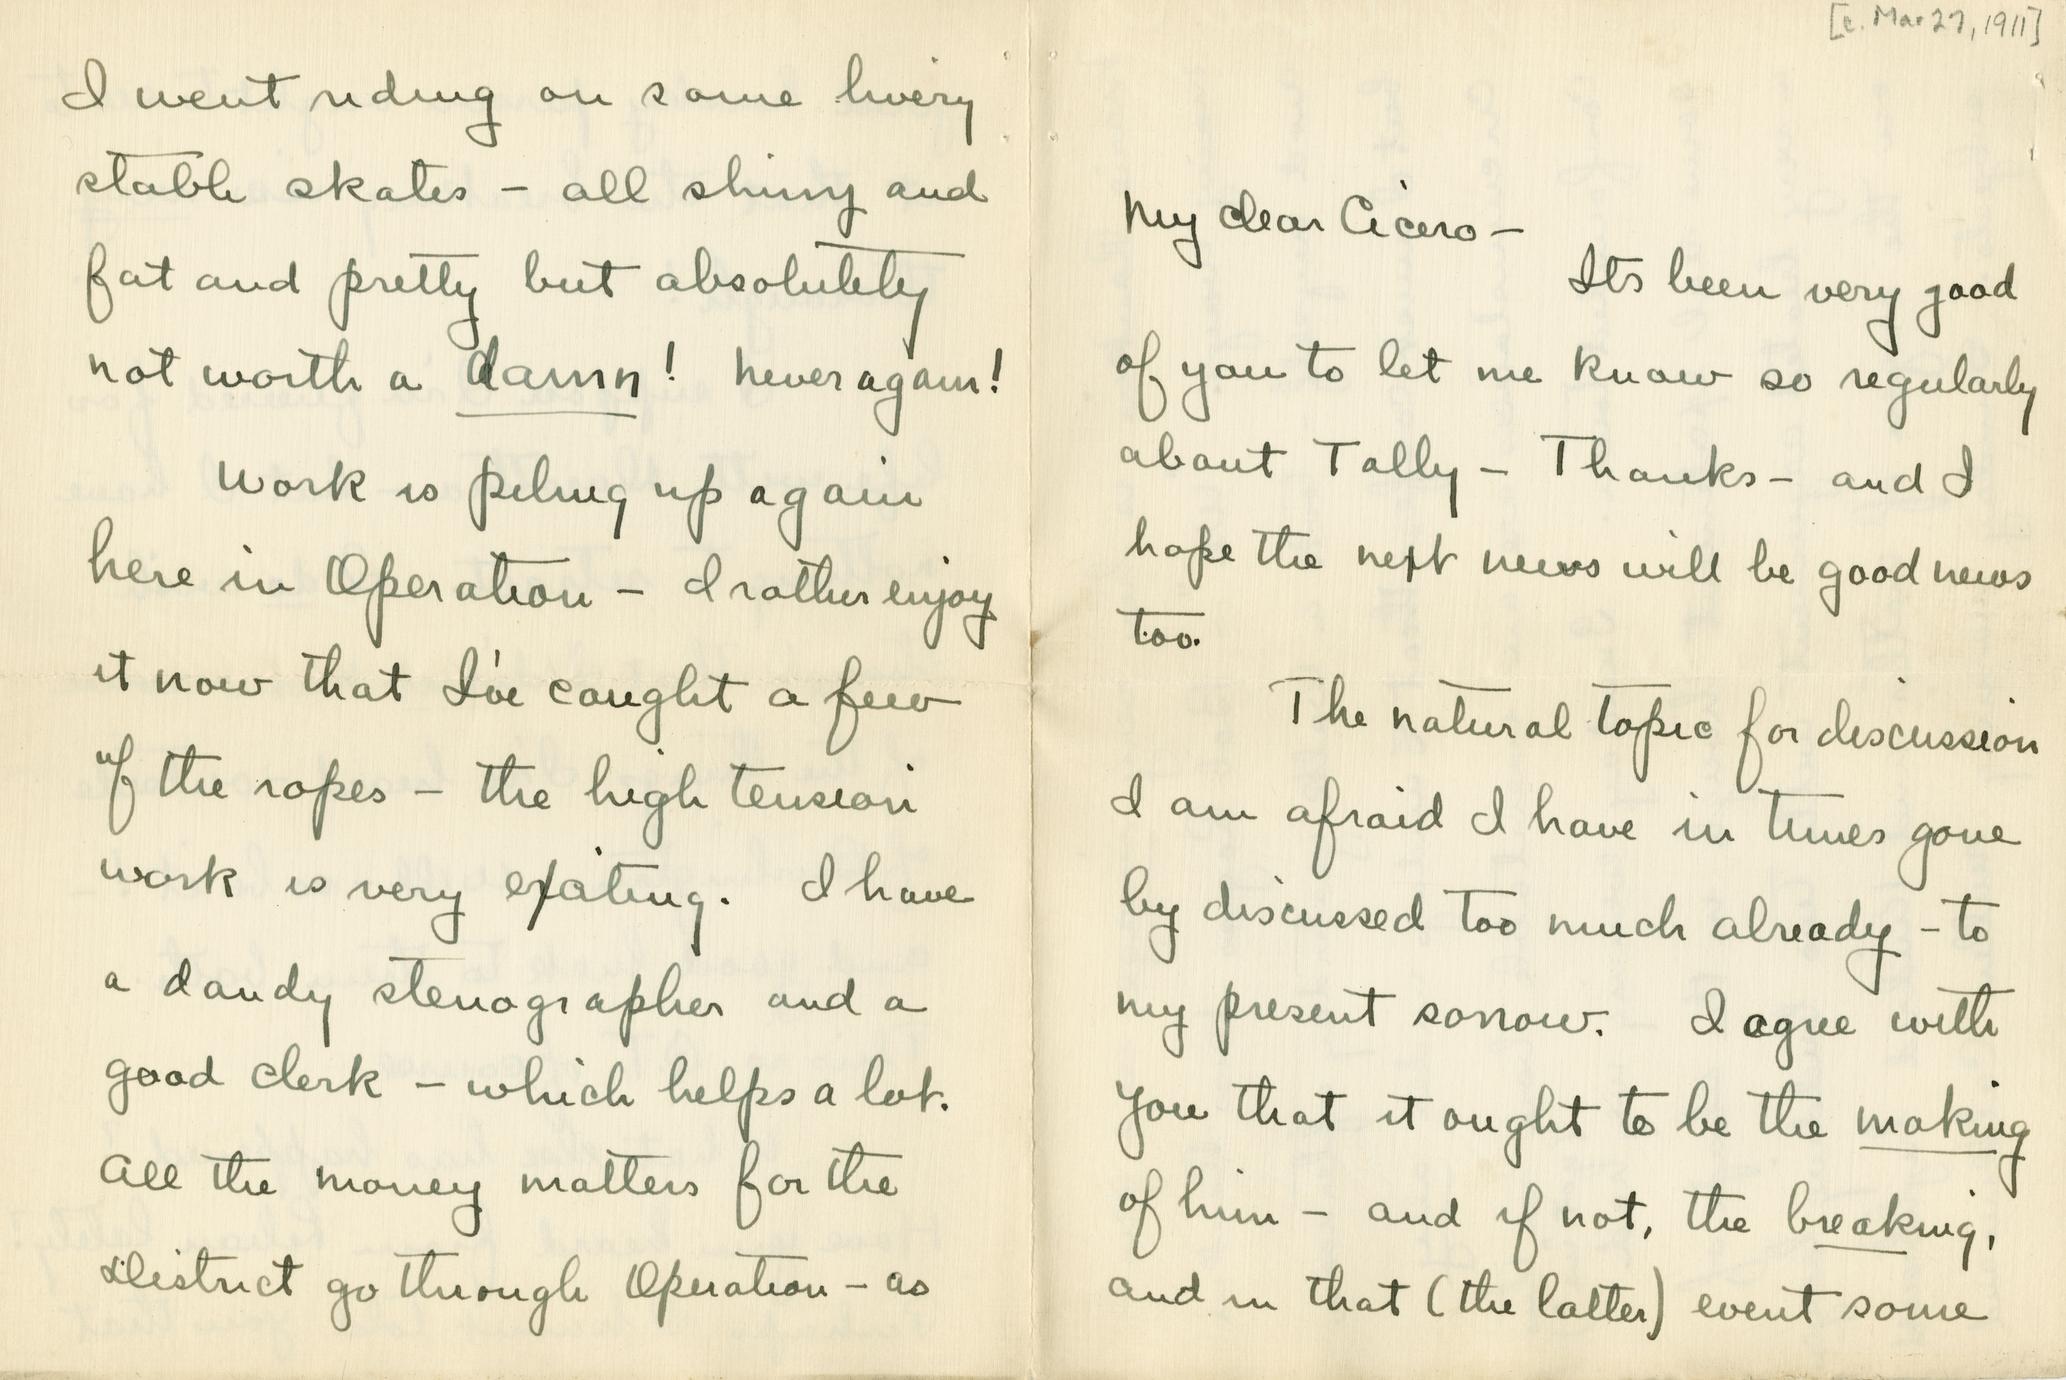 [c. Mar 27, 1911]
My dear Cicero –
Its been very good
of you to let me know so regularly
about Tally – Thanks – and I
hope the next news will be good news
too.
The natural topic for discussion
I am afraid I have in times gone
by discussed too much already – to
my present sorrow. I agree with
you that it ought to be the making
of him – and if not, the breaking,
and in that (the latter) event some
I went riding on some livery
stable skates – all shiny and
fat and pretty but absolutely
not worth a damn! Never again!
Work is piling up again
here in Operation – I rather enjoy
it now that I've caught a few
of the ropes – the high tension
work is very exciting. I have
a dandy stenographer and a
good clerk – which helps a lot.
All the money matters for the
District go through Operation – as